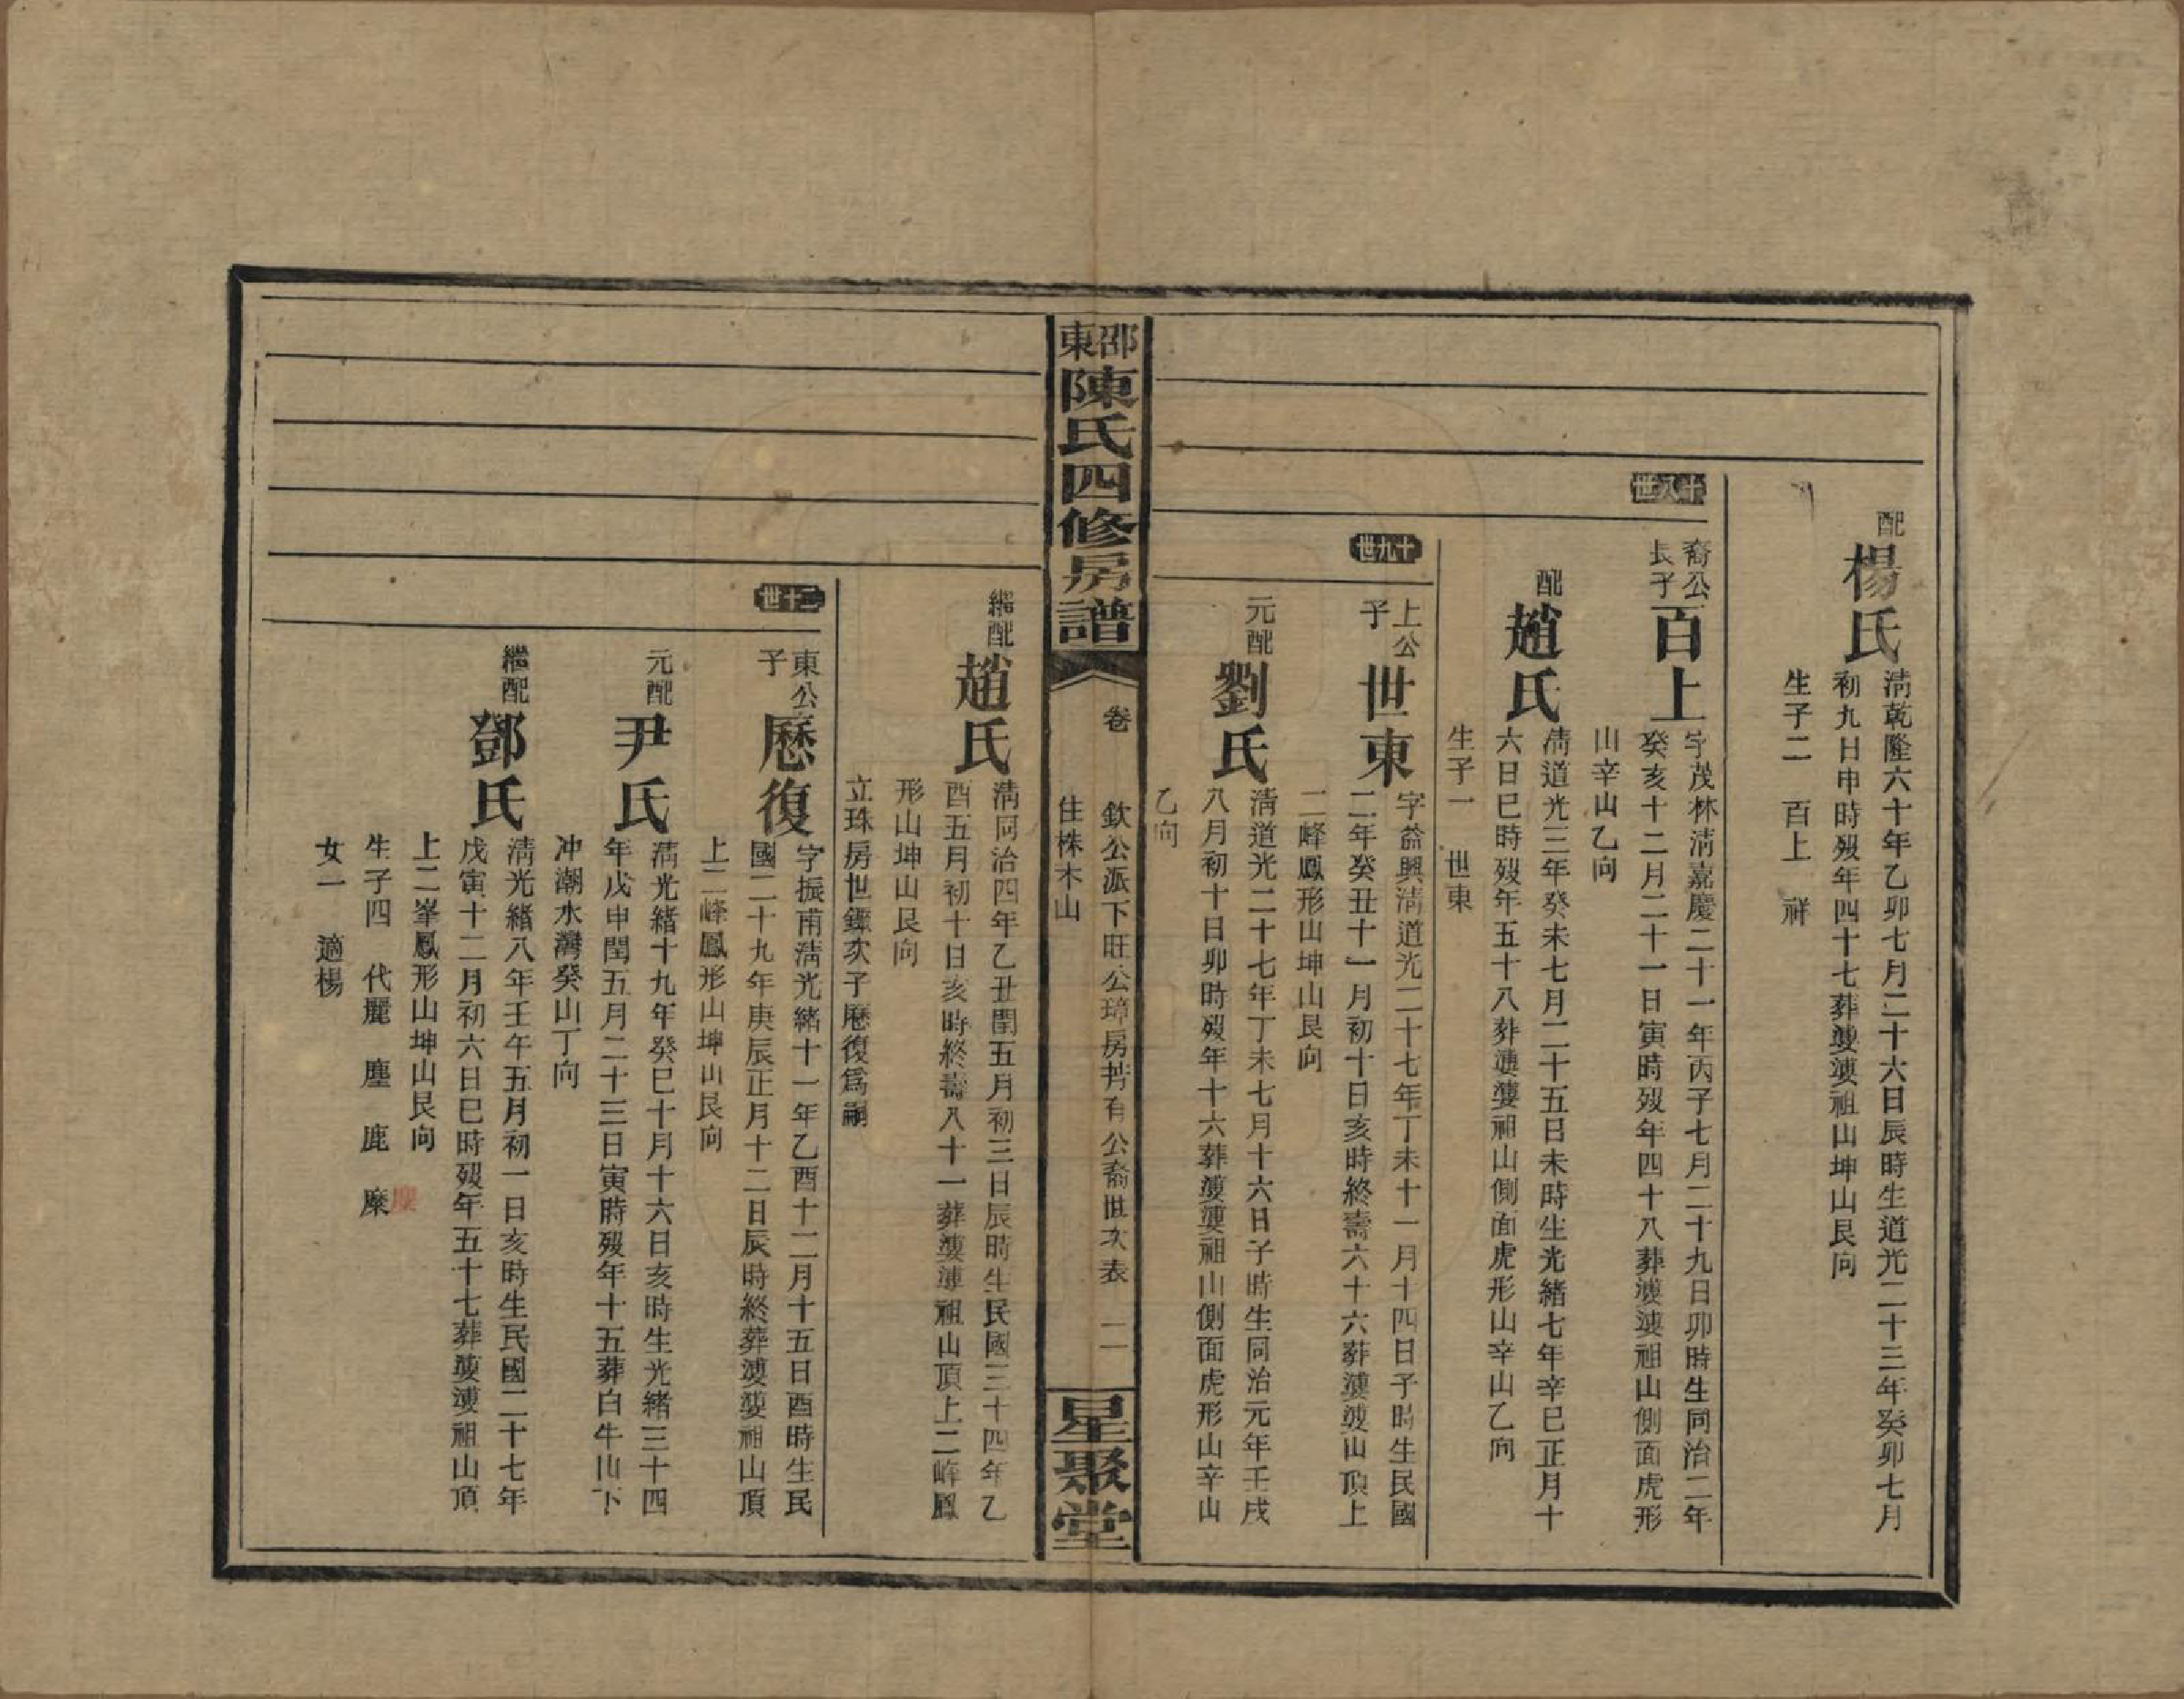 配
楊氏
淸乾隆六十年乙卯七月二十六日辰時生道光二十三年癸卯七月
初九日申時歿年四十七葬婆婆祖山坤山艮向
生子二　百上　祥
十八世
裔公
長子
百上
字茂林淸嘉慶二十一年丙子七月二十九日卯時生同治二年
癸亥十二月二十一日寅時歿年四十八葬婆婆祖山側面虎形
山辛山乙向
配
趙氏
淸道光三年癸未七月二十五日未時生光緒七年辛巳正月十
六日巳時歿年五十八葬婆婆祖山側面虎形山辛山乙向
生子一　世東
十九世
上公
子
世東
字益興淸道光二十七年丁未十一月十四日子時生民國
二年癸丑十一月初十日亥時終壽六十六葬婆婆山頂上
二峰鳳形山坤山艮向
元配
劉氏
淸道光二十七年丁未七月十六日子時生同治元年壬戌
八月初十日卯時歿年十六葬婆婆祖山側面虎形山辛山
乙向
邵東
陳氏四修房譜
卷
欽公派下旺公璋房芳有公裔世次表　二
住株木山
星聚堂
繼配
趙氏
淸同治四年乙丑閏五月初三日辰時生民國三十四年乙
酉五月初十日亥時終壽八十一葬婆婆祖山頂上二峰鳳
形山坤山艮向
立珠房世鑣次子歷復爲嗣
二十世
東公
子
歷復
字振甫淸光緒十一年乙酉十二月十五日酉時生民
國二十九年庚辰正月十二日辰時終葬婆婆祖山頂
上二峰鳳形山坤山艮向
元配
尹氏
淸光緒十九年癸巳十月十六日亥時生光緒三十四
年戊申閏五月二十三日寅時歿年十五葬白牛山下
冲潮水灣癸山丁向
繼配
鄧氏
淸光緒八年壬午五月初一日亥時生民國二十七年
戊寅十二月初六日巳時歿年五十七葬婆婆祖山頂
上二峯鳳形山坤山艮向
生子四　代麗　塵　鹿　糜
麋
女一　適楊